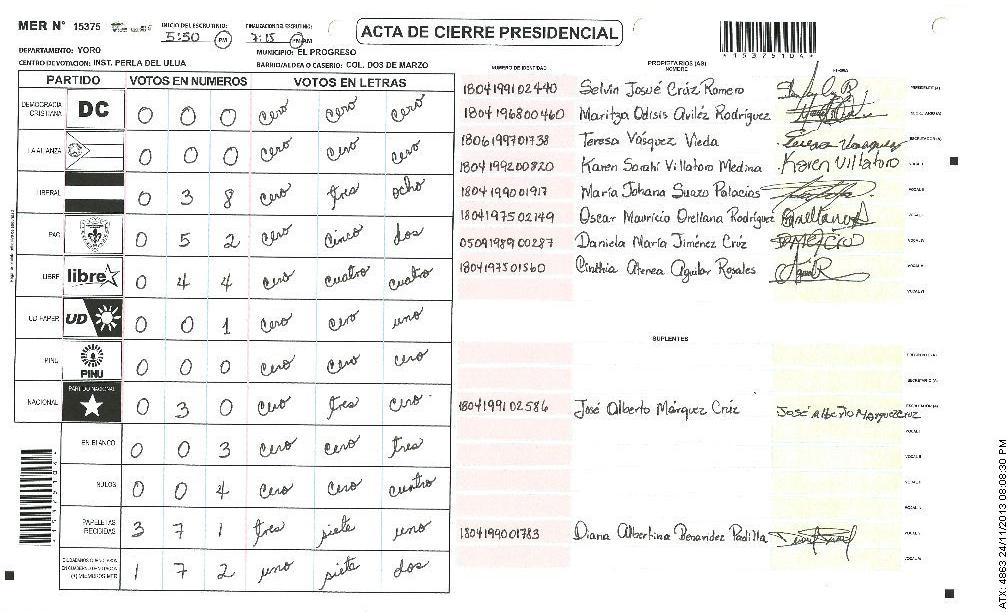 MER N° 15375
INICIO DEL ESCRUTINIO: 5:50 PM
FINALIZACION DEL ESCRUTINIO: 7:15 PM
ACTA DE CIERRE PRESIDENCIAL
DEPARTAMENTO: YORO
MUNICIPIO: EL PROGRESO
CENTRO DE VOTACION: INST. PERLA DEL ULUA
BARRIO/ALDEA O CASERIO: COL. DOS DE MARZO
PARTIDO VOTOS EN NUMEROS VOTOS EN LETRAS
DEMOCRACIA CRISTIANA DC 0 0 0 cero cero cero
LA ALIANZA 0 0 0 cero cero cero
LIBERAL 0 3 8 cero tres ocho
PAC 0 5 2 cero cinco dos
LIBRE libre 0 4 4 cero cuatro cuatro
UD FAPER UD 0 0 1 cero cero uno
PINU PINU 0 0 0 cero cero cero
NACIONAL PARTIDO NACIONAL 0 3 0 cero tres cero
EN BLANCO 0 0 3 cero cero tres
NULOS 0 0 4 cero cero cuatro
PAPELETAS RECIBIDAS 3 7 1 tres siete uno
1 7 2 uno siete dos
NUMERO DE IDENTIDAD PROPIETARIOS (AS) NOMBRE FIRMA
1804199102440 Selvin Josué Crúz Romero
1804196800460 Maritza Odisis Aviléz Rodríguez
1806199701738 Teresa Vásquez Vieda
1804199200820 Karen Sarahí Villatoro Medina Karen Villatoro
1804199001917 María Johana Suazo Palacios
1804197502149 Oscar Mauricio Orellana Rodríguez
0509198900287 Daniela María Jiménez Crúz
1804197501560 Cinthia Atenea Aguilar Rosales
SUPLENTES
1804199102586 José Alberto Márquez Crúz José Alberto Marquez Cruz
1804199001783 Diana Albertina Benandez Padilla
ATX: 4863 24/11/2013 08:08:30 PM